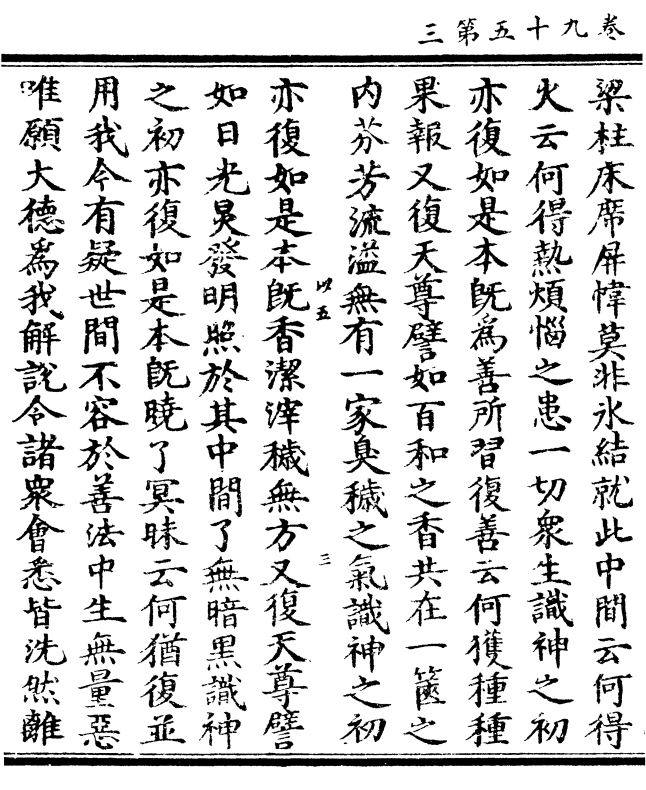 卷九十五第三
梁柱床席屏幃莫非氷結就此中間云何得
火云何得熱煩惱之患一切衆生識神之初
亦復如是本旣爲善所習復善云何獲種種
果報又復天尊譬如百和之香共在一篋之
内芬芳流溢無有一家臭穢之氣識神之初
以五
三
亦復如是本旣香潔滓穢無方又復天尊譬
如日光炅發明照於其中間了無暗黑識神
之初亦復如是本旣曉了冥昧云何猶復並
用我今有疑世間不容於善法中生無量惡
唯願大德爲我解說令諸衆會悉皆洗然離